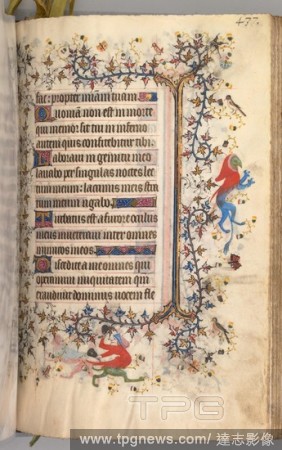 477.
fac: propter miam tuam
Quoniam non est in morte
qui memor sit tui in inferno
autem quis confitebitur tibi.
Laboraui in gemitu meo
lauabo per singulas noctes lec
tum meum: lacrimis meis stra
tum meum rigabo
Turbatus est a furore oculus
meus inueteraui inter omnes
inimicos meos
Discedite a me omnes qui
operamini iniquitatem qm
exaudiuit dominus uocem fle
TPG
www.tpgnews.com/ 達志影像